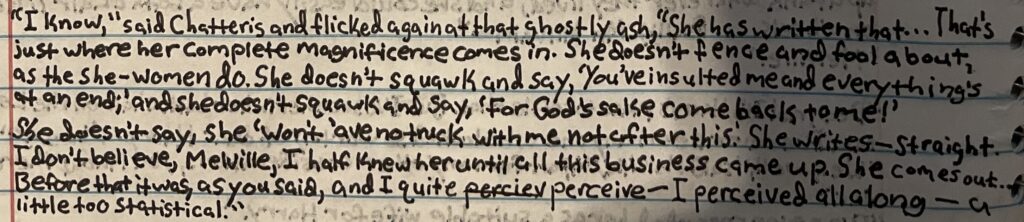 "I know," said Chatteris and flicked again at that ghostly ash, "She has written that... That's
just where her complete magnificence comes in. She doesn't fence and fool about,
as the she-women do. She doesn't squawk and say, 'You've insulted me and everything's
at an end;' and she doesn't squawk and say, 'For God's sake come back to me!'
She doesn't say, she 'won't 'ave no truck with me not after this.' She writes—straight.
I don't believe, Melville, I half knew her until all this business came up. She comes out...
Before that it was, as you said, and I quite perciev perceive—I perceived all along—a
little too statistical."